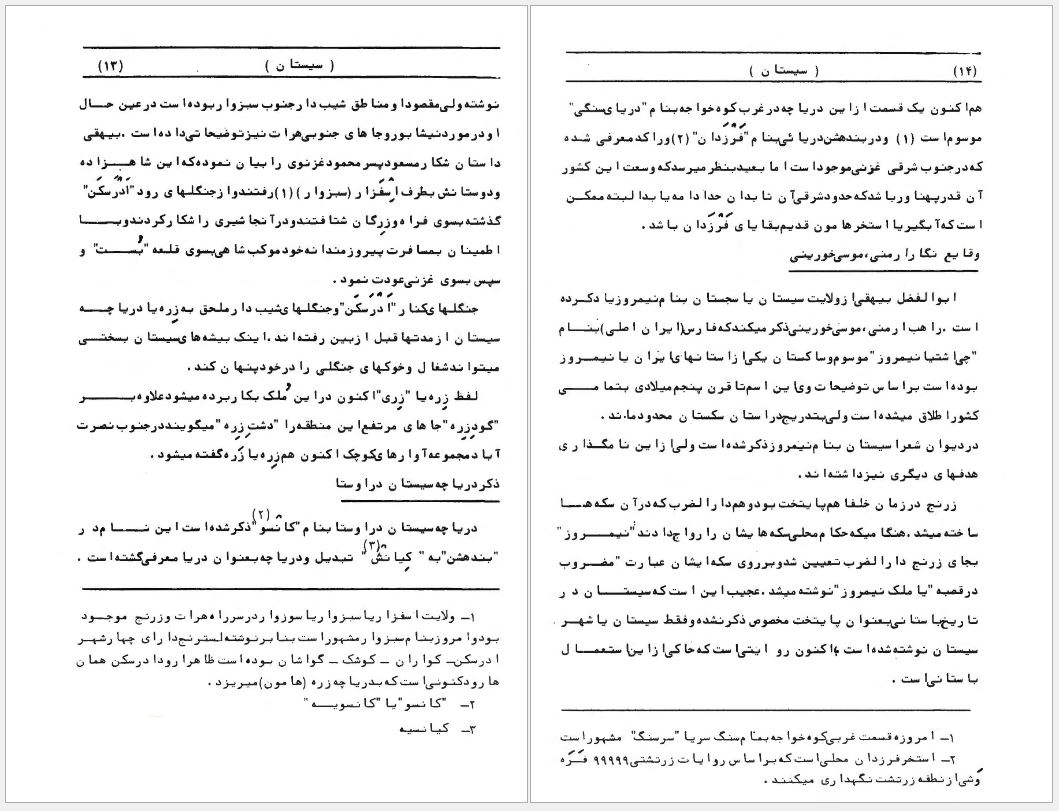 (۱۳) ( سیستان )
نوشته ولی مقصود او مناطق شیب دار جنوب سبزوار بوده است در عین حال
او در مورد نیشابور و جاهای جنوبی هرات نیز توضیحاتی داده است . بیهقی
داستان شکار مسعود پسر محمود غزنوی را بیان نموده که این شاهزاده
و دوستانش بطرف اِسْفَزار (سبزوار) (۱) رفتند و از جنگلهای رود "اَدْرَسکَن"
گذشته بسوی فراه و زیرگان شتافتند و در آنجا شیری را شکار کردند و با
اطمینان بمسافرت پیروزمندانه خود موکب شاهی بسوی قلعه "بُست" و
سپس بسوی غزنی عودت نمود .
جنگلهای کنار "اَدْرَسکَن" و جنگلهای شیب دار ملحق به زِره یا دریاچه
سیستان از مدتها قبل از بین رفته اند . اینک بیشه های سیستان بسختی
میتواند شغال و خوکهای جنگلی را در خود پنهان کند .
لفظ زِره یا "زِری" اکنون در این مُلک بکار برده میشود علاوه بر
"گود زِره" جاهای مرتفع این منطقه را "دشت زِره" میگویند در جنوب نصرت
آباد مجموعه آوارهای کوچک اکنون هم زِره یا زَره گفته میشود .
ذکر دریاچه سیستان در اوستا
دریاچه سیستان در اوستا بنام "کانْسو" (۲) ذکر شده است این نام در
"بندهشن" به "کیانْش" (۳) تبدیل و دریاچه بعنوان دریا معرفی گشته است .
۱ـ ولایت اسفزار یا سبزوار یا سوزوار در سر راه هرات و زرنج موجود
بود و امروز بنام سبزوار مشهور است بنا بر نوشته لسترنج دارای چهار شهر
ادرسکن ـ کواران ـ کوشک ـ گواشان بوده است ظاهرا رود ادرسکن همان
هارود کنونی است که بدریاچه زره (هامون) میریزد .
۲ـ "کانسو" یا "کانسویه"
۳ـ کیانسیه
( سیستان ) (۱۴)
هم اکنون یک قسمت از این دریاچه در غرب کوه خواجه بنام "دریای سنگی"
موسوم است (۱) و در بندهشن دریائی بنام "فَرَزدان" (۲) وراکد معرفی شده
که در جنوب شرقی غزنی موجود است اما بعید بنظر میرسد که وسعت این کشور
آن قدر پهناور باشد که حدود شرقی آن تا بدان حد ادامه یابد البته ممکن
است که آبگیر یا استخر هامون قدیم بقایای فَرَزدان باشد .
وقایع نگار ارمنی ، موسی خورینی
ابوالفضل بیهقی از ولایت سیستان یا سجستان بنام نیمروز یاد کرده
است . راهب ارمنی ، موسی خورینی ذکر میکند که فارس (ایران اصلی) بنام
"چی اشتیا نیمروز" موسوم و ساکستان یکی از استانهای ایران یا نیمروز
بوده است بر اساس توضیحات وی این اسم تا قرن پنجم میلادی بتمامی
کشور اطلاق میشده است ولی بتدریج در استان سکستان محدود ماند .
در دیوان شعرا سیستان بنام نیمروز ذکر شده است ولی از این نامگذاری
هدفهای دیگری نیز داشته اند .
زرنج در زمان خلفا هم پایتخت بود و هم دارالضرب که در آن سکه ها
ساخته میشد . هنگامیکه حکام محلی سکه هایشان را رواج دادند "نیمروز"
بجای زرنج دارالضرب تعیین شد و بر روی سکه ایشان عبارت "مضروب
در قصبه" یا ملک نیمروز "نوشته میشد . عجیب این است که سیستان در
تاریخ باستانی بعنوان پایتخت مخصوص ذکر نشده و فقط سیستان یا شهر
سیستان نوشته شده است ؛ اکنون روایتی است که حاکی از این استعمال
باستانی است .
۱ـ امروزه قسمت غربی کوه خواجه بنام سنگ سر یا "سرسنگ" مشهور است
۲ـ استخر فرزدان محلی است که بر اساس روایات زرتشتی ۹۹۹۹۹ فَرَه
وَشی از نطفه زرتشت نگهداری میکنند .